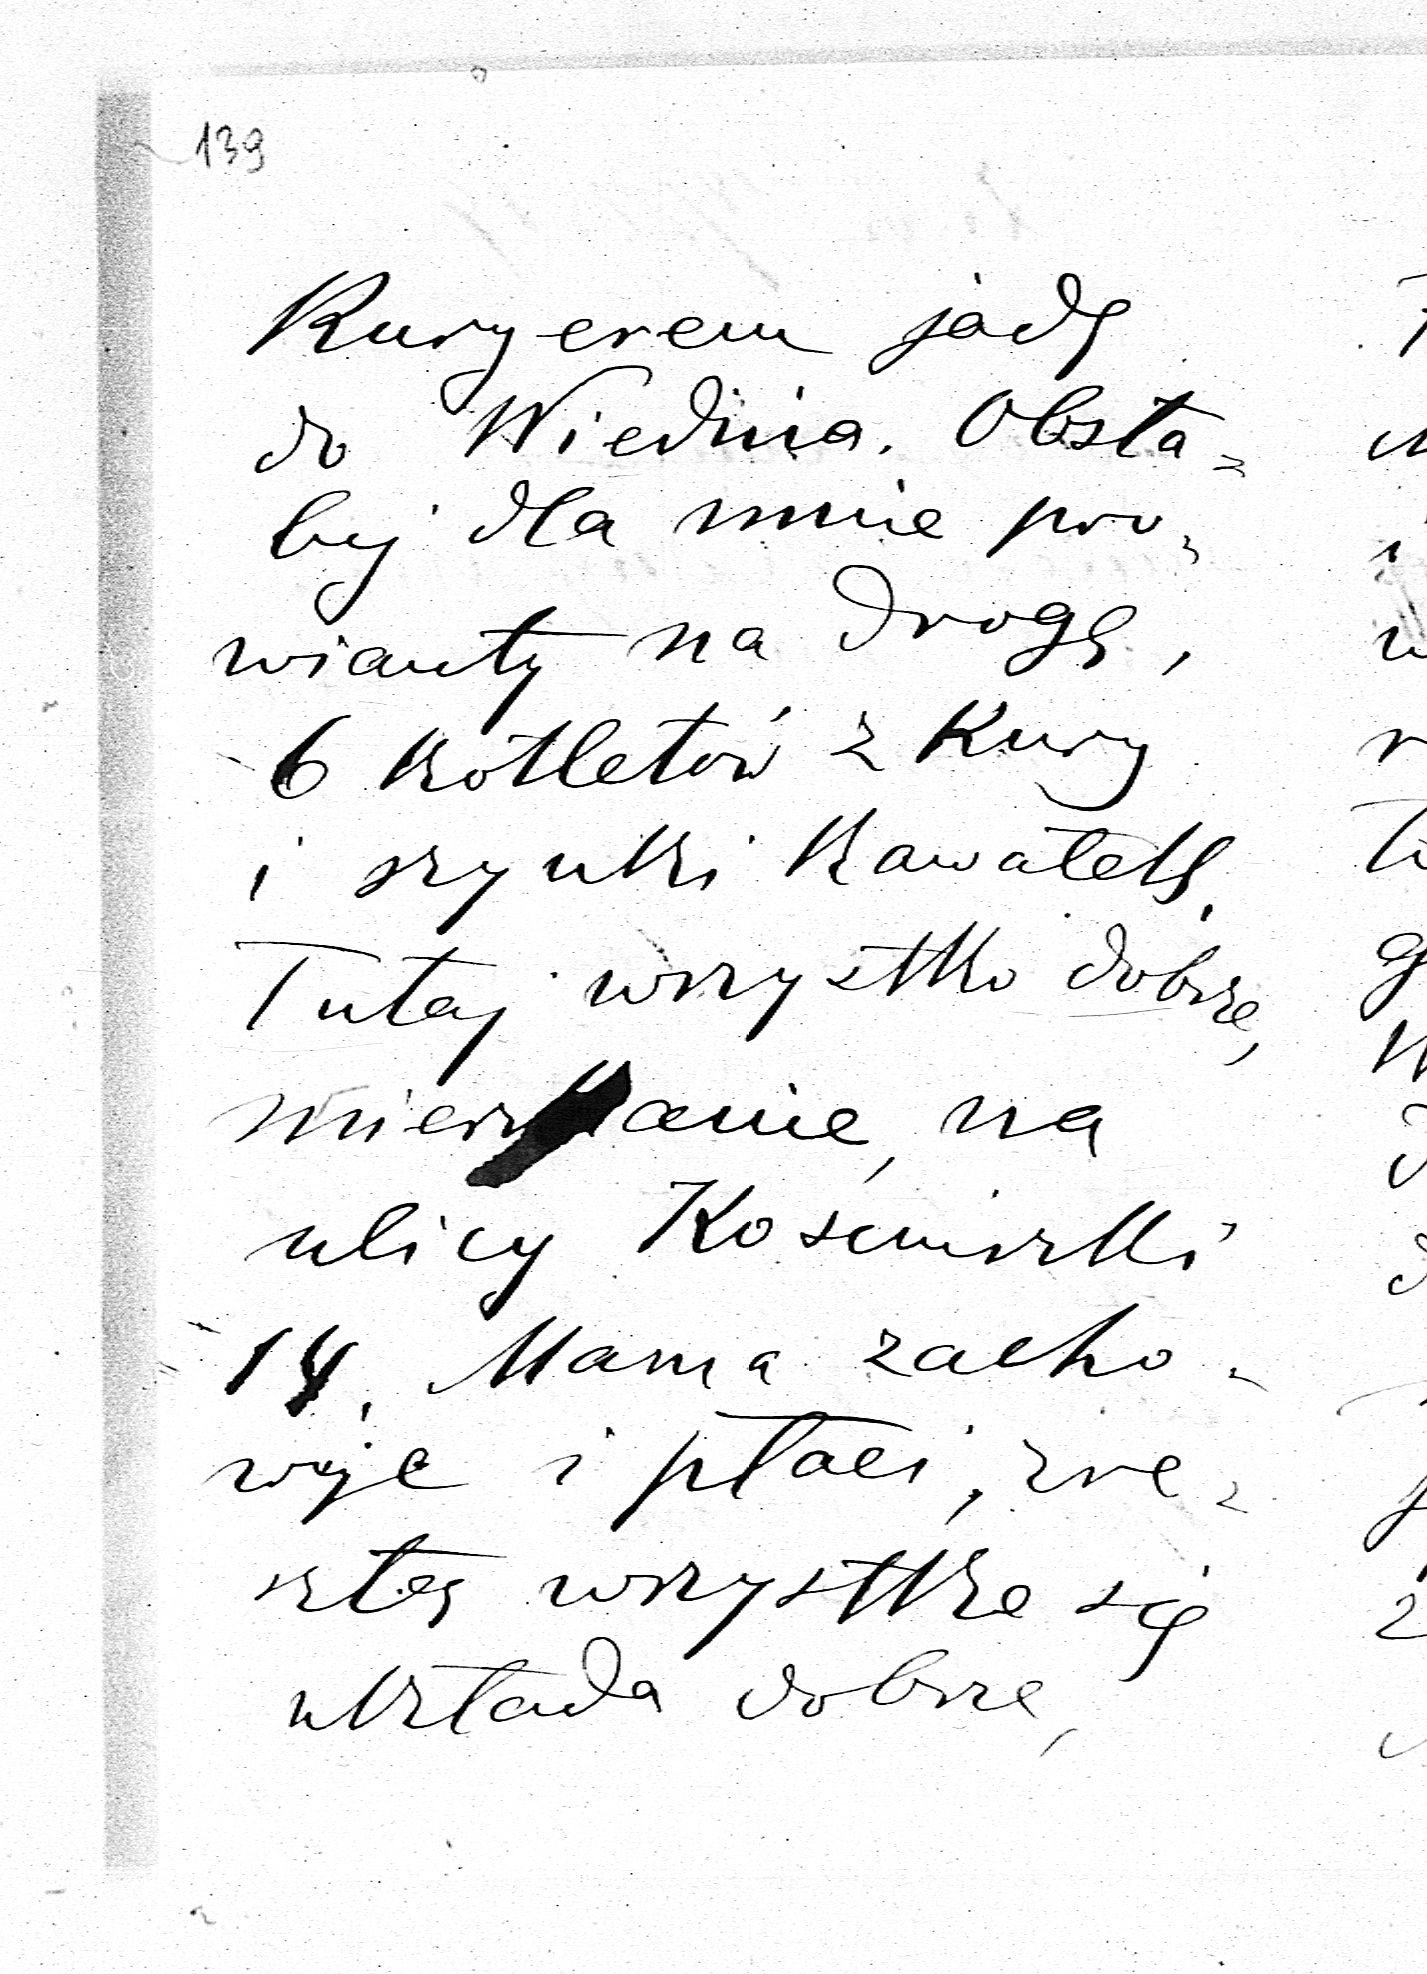 139
Kuryerem jadę
do Wiednia. Obsta-
luj dla mnie pro-
wianty na drogę,
6 kotletów z kury
i szynki kawałek,
Tutaj wszystko dobrze,
mieszkanie, na
ulicy Kosciuszki
14, Mama zacho-
wuje i płaci, zre-
sztą wszystko się
układa dobrze,